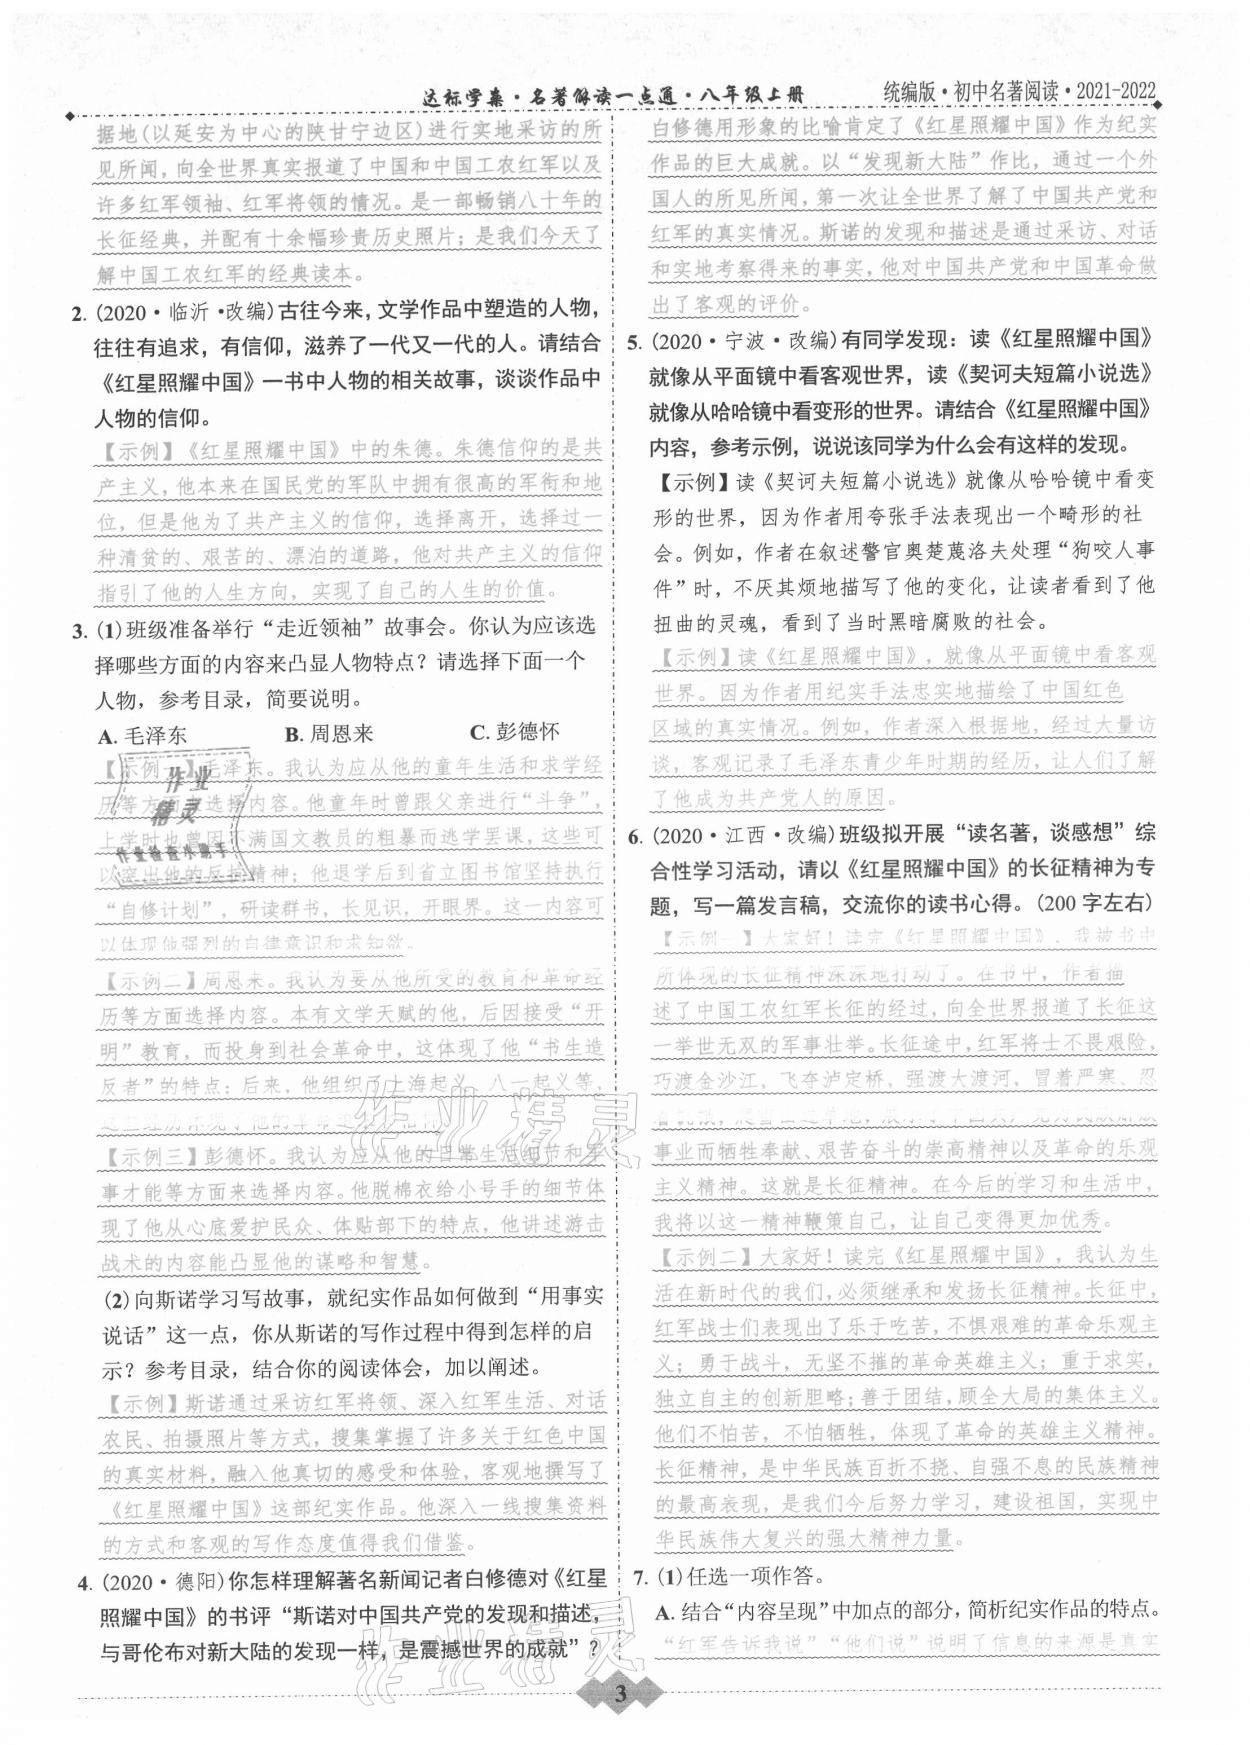 达标学案·名著解读一点通·八年级上册
统编版·初中名著阅读·2021-2022
据地(以延安为中心的陕甘宁边区)进行实地采访的所
见所闻，向全世界真实报道了中国和中国工农红军以及
许多红军领袖、红军将领的情况。是一部畅销八十年的
长征经典，并配有十余幅珍贵历史照片；是我们今天了
解中国工农红军的经典读本。
2. (2020·临沂·改编)古往今来，文学作品中塑造的人物，
往往有追求，有信仰，滋养了一代又一代的人。请结合
《红星照耀中国》一书中人物的相关故事，谈谈作品中
人物的信仰。
【示例】《红星照耀中国》中的朱德。朱德信仰的是共
产主义，他本来在国民党的军队中拥有很高的军衔和地
位，但是他为了共产主义的信仰，选择离开，选择过一
种清贫的、艰苦的、漂泊的道路，他对共产主义的信仰
指引了他的人生方向，实现了自己的人生的价值。
3. (1)班级准备举行“走近领袖”故事会。你认为应该选
择哪些方面的内容来凸显人物特点？请选择下面一个
人物，参考目录，简要说明。
A. 毛泽东 B. 周恩来 C. 彭德怀
【示例一】毛泽东。我认为应从他的童年生活和求学经
历等方面选择内容。他童年时曾跟父亲进行“斗争”，
上学时也曾因不满国文教员的粗暴而逃学罢课，这些可
以突出他的反抗精神；他退学后到省立图书馆坚持执行
“自修计划”，研读群书，长见识，开眼界。这一内容可
以体现他强烈的自律意识和求知欲。
【示例二】周恩来。我认为要从他所受的教育和革命经
历等方面选择内容。本有文学天赋的他，后因接受“开
明”教育，而投身到社会革命中，这体现了他“书生造
反者”的特点；后来，他组织了上海起义、八一起义等，
这些经历体现了他的革命
【示例三】彭德怀。我认为应从他的日常生活细节和军
事才能等方面来选择内容。他脱棉衣给小号手的细节体
现了他从心底爱护民众、体贴部下的特点，他讲述游击
战术的内容能凸显他的谋略和智慧。
(2)向斯诺学习写故事，就纪实作品如何做到“用事实
说话”这一点，你从斯诺的写作过程中得到怎样的启
示？参考目录，结合你的阅读体会，加以阐述。
【示例】斯诺通过采访红军将领、深入红军生活、对话
农民、拍摄照片等方式，搜集掌握了许多关于红色中国
的真实材料，融入他真切的感受和体验，客观地撰写了
《红星照耀中国》这部纪实作品。他深入一线搜集资料
的方式和客观的写作态度值得我们借鉴。
4. (2020·德阳)你怎样理解著名新闻记者白修德对《红星
照耀中国》的书评“斯诺对中国共产党的发现和描述，
与哥伦布对新大陆的发现一样，是震撼世界的成就”？
白修德用形象的比喻肯定了《红星照耀中国》作为纪实
作品的巨大成就。以“发现新大陆”作比，通过一个外
国人的所见所闻，第一次让全世界了解了中国共产党和
红军的真实情况。斯诺的发现和描述是通过采访、对话
和实地考察得来的事实，他对中国共产党和中国革命做
出了客观的评价。
5. (2020·宁波·改编)有同学发现：读《红星照耀中国》
就像从平面镜中看客观世界，读《契诃夫短篇小说选》
就像从哈哈镜中看变形的世界。请结合《红星照耀中国》
内容，参考示例，说说该同学为什么会有这样的发现。
【示例】读《契诃夫短篇小说选》就像从哈哈镜中看变
形的世界，因为作者用夸张手法表现出一个畸形的社
会。例如，作者在叙述警官奥楚蔑洛夫处理“狗咬人事
件”时，不厌其烦地描写了他的变化，让读者看到了他
扭曲的灵魂，看到了当时黑暗腐败的社会。
【示例】读《红星照耀中国》，就像从平面镜中看客观
世界。因为作者用纪实手法忠实地描绘了中国红色
区域的真实情况。例如，作者深入根据地，经过大量访
谈，客观记录了毛泽东青少年时期的经历，让人们了解
了他成为共产党人的原因。
6. (2020·江西·改编)班级拟开展“读名著，谈感想”综
合性学习活动，请以《红星照耀中国》的长征精神为专
题，写一篇发言稿，交流你的读书心得。(200字左右)
【示例一】大家好！读完《红星照耀中国》，我被书中
所体现的长征精神深深地打动了。在书中，作者描
述了中国工农红军长征的经过，向全世界报道了长征这
一举世无双的军事壮举。长征途中，红军将士不畏艰险，
巧渡金沙江，飞夺泸定桥，强渡大渡河，冒着严寒、忍
着饥饿，爬雪山过草地，展示了中国共产党为民族解放
事业而牺牲奉献、艰苦奋斗的崇高精神以及革命的乐观
主义精神。这就是长征精神。在今后的学习和生活中，
我将以这一精神鞭策自己，让自己变得更加优秀。
【示例二】大家好！读完《红星照耀中国》，我认为生
活在新时代的我们，必须继承和发扬长征精神。长征中，
红军战士们表现出了乐于吃苦，不惧艰难的革命乐观主
义；勇于战斗，无坚不摧的革命英雄主义；重于求实，
独立自主的创新胆略；善于团结，顾全大局的集体主义。
他们不怕苦，不怕牺牲，体现了革命的英雄主义精神。
长征精神，是中华民族百折不挠、自强不息的民族精神
的最高表现，是我们今后努力学习，建设祖国，实现中
华民族伟大复兴的强大精神力量。
7. (1)任选一项作答。
A. 结合“内容呈现”中加点的部分，简析纪实作品的特点。
“红军告诉我说”“他们说”说明了信息的来源是真实
3
作业
精灵
作业检查小助手
作业精灵
作业精灵